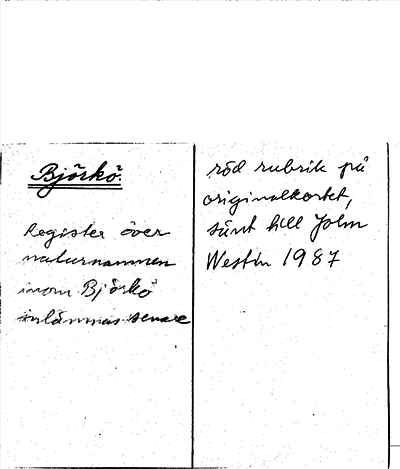 Björkö.
Register över
naturnamnen
inom Björkö
inlämnas senare
röd rubrik på
originalkortet,
sänt till John
Westin 1987